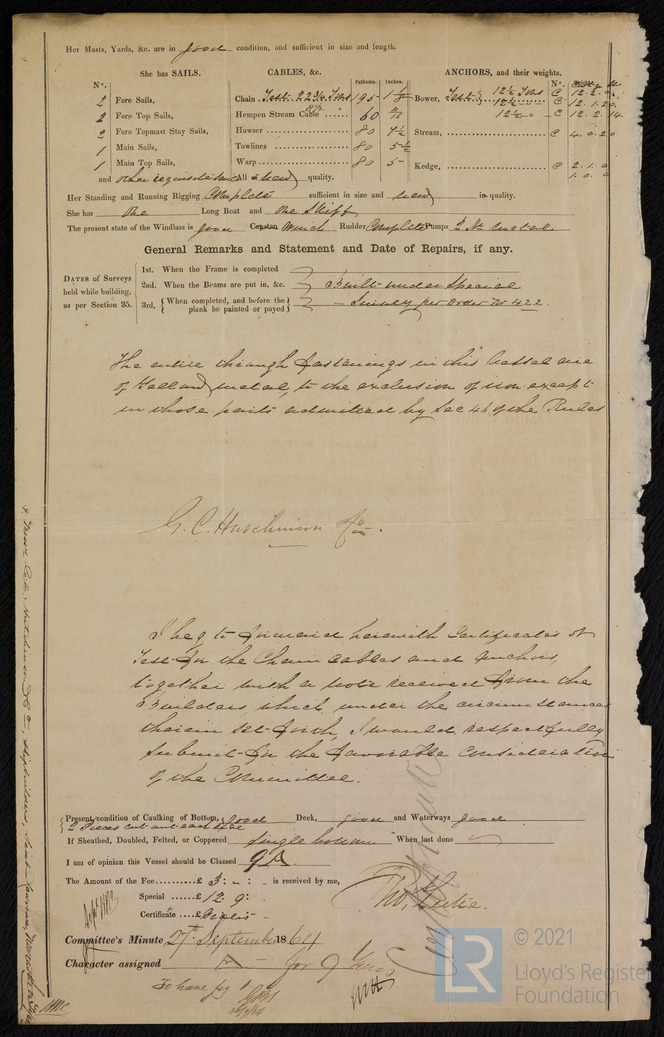 Her Masts, Yards, &c. are in good condition, and sufficient in size and length.
She has SAILS.
CABLES, &c.
Fathoms.
Inches.
ANCHORS, and their weights.
No.
No.
Weights
2 Fore Sails,
2 Fore Top Sails,
2 Fore Topmast Stay Sails,
1 Main Sails,
1 Main Top Sails,
and other requisite
Chain Test 22 3/4 Tons 195 1 1/8
Hempen Stream Cable 60
Hawser 80 7 1/2
Towlines 80 5 1/2
Warp 80 5
All new quality.
Bower, Test 12 1/2 Tons C 12. 2.
12 1/2 C 12. 1. 20
12 1/2 " C 12. 2. 14
Stream, C 4. 0. 20
Kedge, C 2. 1. 0
1. 0. 0
Her Standing and Running Rigging Complete sufficient in size and new in quality.
She has One Long Boat and One Skiff
The present state of the Windlass is good Capstan Winch Rudder Complete Pumps 2 Metal
General Remarks and Statement and Date of Repairs, if any.
DATES of Surveys held while building, as per Section 35.
1st. When the Frame is completed
2nd. When the Beams are put in, &c.
3rd. {When completed, and before the plank be painted or payed}
Built under Special
Survey per Order No 422.
The entire through fastenings in this Vessel are
of Yellow metal, to the exclusion of iron except
in those parts admitted by Sec 46 of the Rules
G. C. Hutchinson
I beg to forward herewith Certificates of
Test for the Chain Cables and Anchors,
together with a note received from the
Builders which under the circumstances
therein set forth, I would respectfully
submit for the favorable consideration
of the Committee.
Present condition of Caulking of Bottom, good Deck, good and Waterways good
2 Pieces cut out each side
If Sheathed, Doubled, Felted, or Coppered Single bottom When last done
I am of opinion this Vessel should be Classed 9 A
The Amount of the Fee £ 3: -: - is received by me,
Special £ 12. 9: -
Certificate £ Gratis
Committee's Minute 27th September 1864
Character assigned A for 9 Years
To have fig 1
© 2021
LR
Lloyd's Register
Foundation